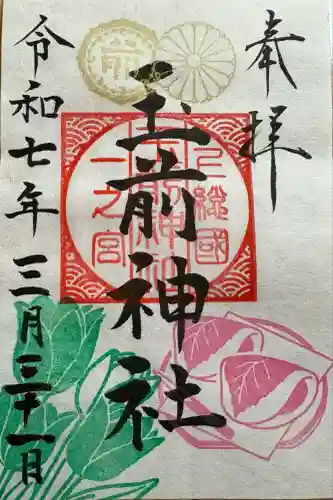 奉拝
上総國
玉前神社
一之宮
玉前神社
令和七年三月三十一日